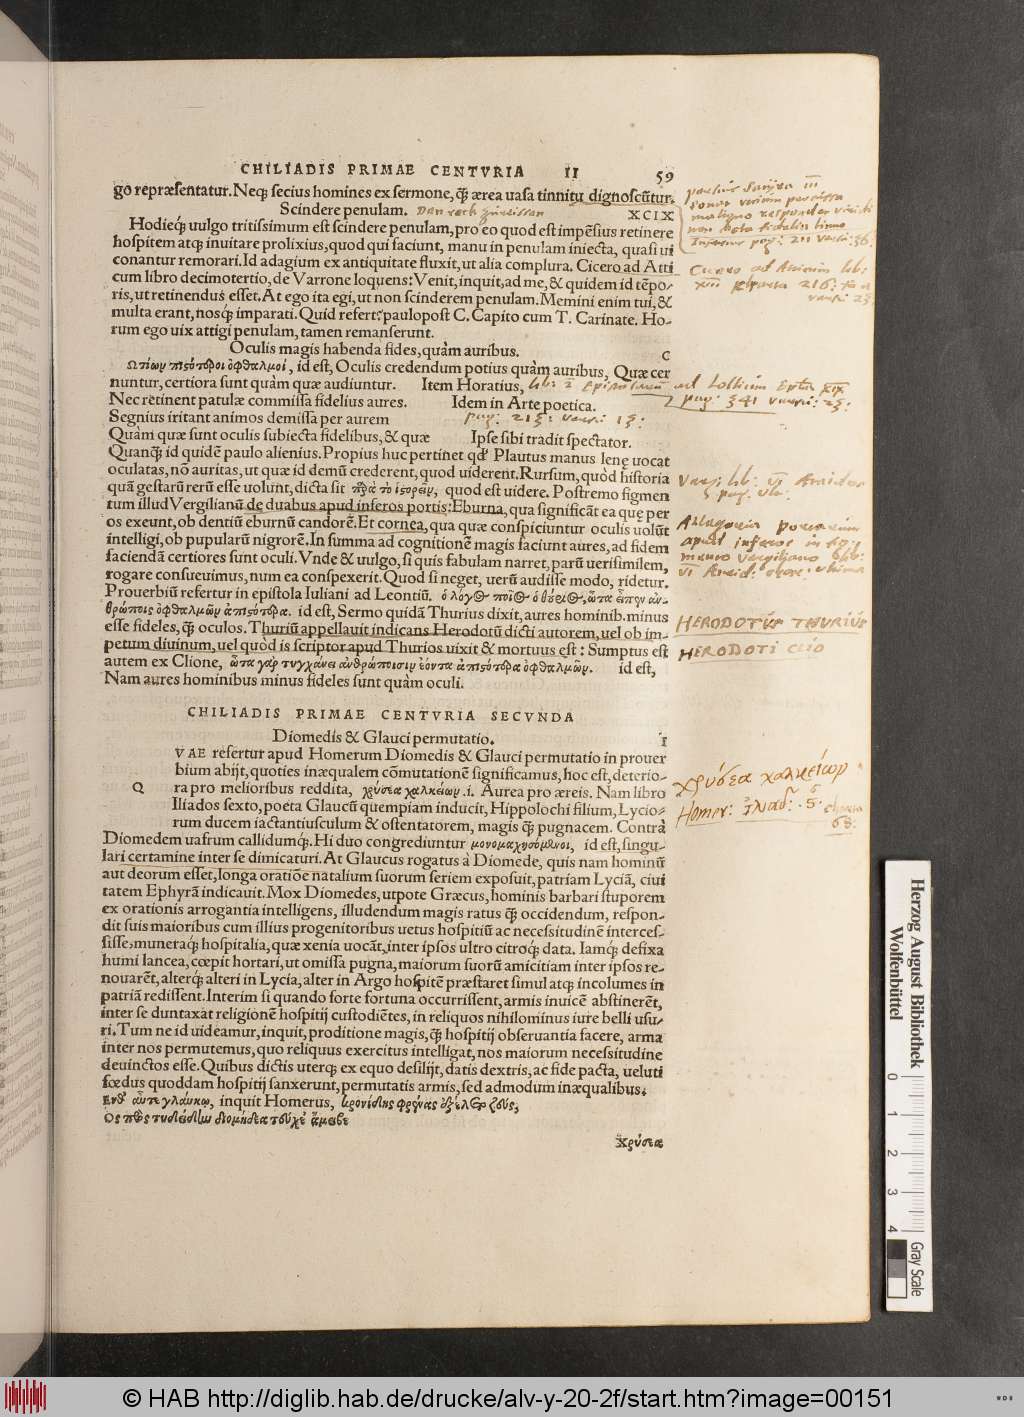 CHILIADIS PRIMAE CENTVRIA II 59
go repræsentatur. Neq; secius homines ex sermone, q̃ ærea uasa tinnitu dignoscũtur.
Scindere penulam. XCIX
Hodieq́; uulgo tritissimum est scindere penulam, pro eo quod est impẽsius retinere
hospitem atq; inuitare prolixius, quod qui faciunt, manu in penulam iniecta, quasi ui
conantur remorari. Id adagium ex antiquitate fluxit, ut alia complura. Cicero ad Atti
cum libro decimotertio, de Varrone loquens: Venit, inquit, ad me, & quidem id tẽpo-
ris, ut retinendus esset. At ego ita egi, ut non scinderem penulam. Memini enim tui, &
multa erant, nosq́; imparati. Quid refert: paulopost C. Capito cum T. Carinate. Ho-
rum ego uix attigi penulam, tamen remanserunt.
Oculis magis habenda fides, quàm auribus. C
Ωτίων πιςότεροι ὀφθαλμοί, id est, Oculis credendum potius quàm auribus, Quæ cer
nuntur, certiora sunt quàm quæ audiuntur. Item Horatius,
Nec retinent patulæ commissa fidelius aures. Idem in Arte poetica.
Segnius iritant animos demissa per aurem
Quàm quæ sunt oculis subiecta fidelibus, & quæ Ipse sibi tradit spectator.
Quanq̃ id quidẽ paulo alienius. Propius huc pertinet qđ Plautus manus lenę uocat
oculatas, nõ auritas, ut quæ id demũ crederent, quod uiderent. Rursum, quòd historia
quã gestarũ rerũ esse uolunt, dicta sit παρὰ τὸ ἱςορεῖν, quod est uidere. Postremo figmen
tum illud Vergilianũ de duabus apud inferos portis: Eburna, qua significãt ea quę per
os exeunt, ob dentiũ eburnũ candorẽ. Et cornea, qua quæ conspiciuntur oculis uolũt
intelligi, ob pupularũ nigrorẽ. In summa ad cognitionẽ magis faciunt aures, ad fidem
faciendã certiores sunt oculi. Vnde & uulgo, si quis fabulam narret, parũ uerisimilem,
rogare consueuimus, num ea conspexerit. Quod si neget, uerũ audisse modo, ridetur.
Prouerbiũ refertur in epistola Iuliani ad Leontiũ.
ὀφθαλμῶν ἀπιςότερα. id est, Sermo quidã Thurius dixit, aures hominib. minus
esse fideles, q̃ oculos. Thuriũ appellauit indicans Herodotũ dicti autorem, uel ob im-
petum diuinum, uel quòd is scriptor apud Thurios uixit & mortuus est: Sumptus est
autem ex Clione, ὦτα γὰρ τυγχάνει ἀνθρώποισιν ἐόντα ἀπιςότερα ὀφθαλμῶν. id est,
Nam aures hominibus minus fideles sunt quàm oculi.
CHILIADIS PRIMAE CENTVRIA SECVNDA
Diomedis & Glauci permutatio. I
QVAE refertur apud Homerum Diomedis & Glauci permutatio in prouer
bium abijt, quoties inæqualem cõmutationẽ significamus, hoc est, deterio-
ra pro melioribus reddita, χρύσεα χαλκείων .i. Aurea pro æreis. Nam libro
Iliados sexto, poeta Glaucũ quempiam inducit, Hippolochi filium, Lycio-
rum ducem iactantiusculum & ostentatorem, magis q̃ pugnacem. Contrà
Diomedem uafrum callidumq́;. Hi duo congrediuntur μονομαχησόμενοι, id est, singu-
lari certamine inter se dimicaturi. At Glaucus rogatus à Diomede, quis nam hominũ
aut deorum esset, longa oratiõe natalium suorum seriem exposuit, patriam Lyciã, ciui
tatem Ephyrã indicauit. Mox Diomedes, utpote Græcus, hominis barbari stuporem
ex orationis arrogantia intelligens, illudendum magis ratus q̃ occidendum, respon-
dit suis maioribus cum illius progenitoribus uetus hospitiũ ac necessitudinẽ interces-
sisse, muneraq́; hospitalia, quæ xenia uocãt, inter ipsos ultro citroq́; data. Iamq́; defixa
humi lancea, cœpit hortari, ut omissa pugna, maiorum suorũ amicitiam inter ipsos re-
nouarẽt, alterq́; alteri in Lycia, alter in Argo hospitẽ præstaret simul atq; incolumes in
patriã redissent. Interim si quando forte fortuna occurrissent, armis inuicẽ abstinerẽt,
inter se duntaxat religionẽ hospitij custodiẽtes, in reliquos nihilominus iure belli usu-
ri. Tum ne id uideamur, inquit, proditione magis, q̃ hospitij obseruantia facere, arma
inter nos permutemus, quo reliquus exercitus intelligat, nos maiorum necessitudine
deuinctos esse. Quibus dictis uterq; ex equo desilijt, datis dextris, ac fide pacta, ueluti
fœdus quoddam hospitij sanxerunt, permutatis armis, sed admodum inæqualibus.
Ενθ᾽ αὖτε γλαύκῳ, inquit Homerus, κρονίδης φρένας ἐξέλετο ζεύς,
Ος πρὸς τυδείδην διομήδεα τεύχε᾽ ἄμειβε
χρύσεα
HERODOTVS THVRIVS
HERODOTI CLIO
χρύσεα χαλκείων
Homer:
68.
© HAB http://diglib.hab.de/drucke/alv-y-20-2f/start.htm?image=00151
Herzog August Bibliothek
Wolfenbüttel
0 1 2 3 4
Gray Scale